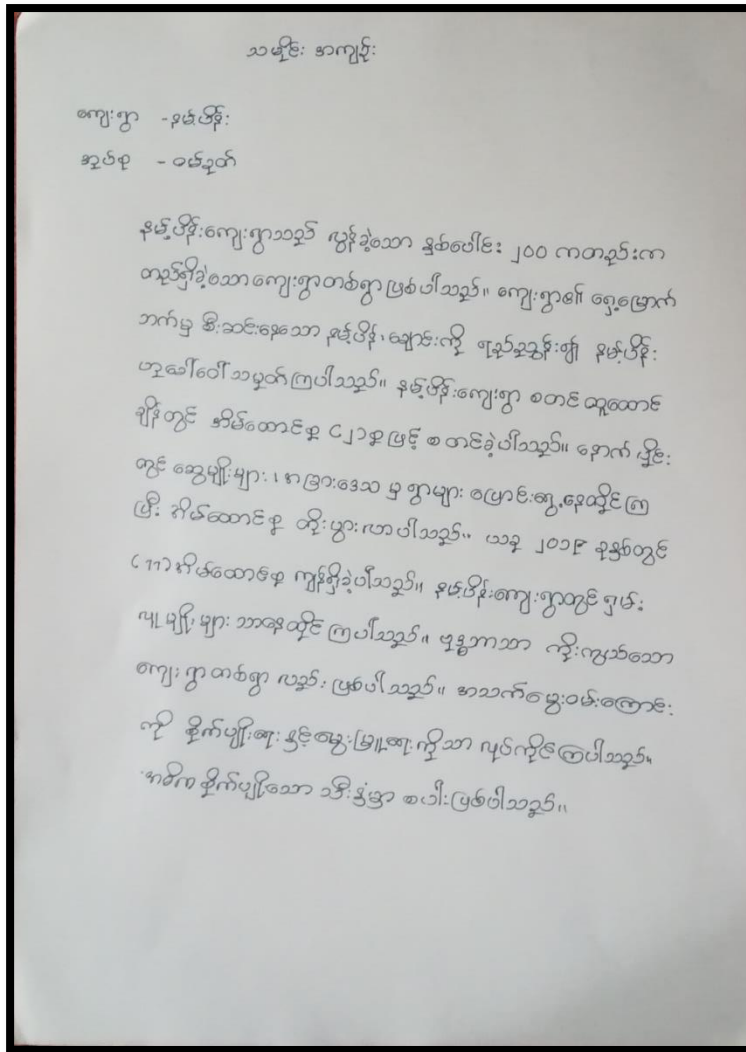 သမိုင်း အကျဉ်း
ကျေးရွာ - နမ့်ပိန်း
အုပ်စု - ဝမ်ခုတ်
နမ့်ပိန်းကျေးရွာသည် လွန်ခဲ့သော နှစ်ပေါင်း ၂၀၀ ကတည်းက
တည်ရှိခဲ့သော ကျေးရွာတစ်ရွာ ဖြစ်ပါသည်။ ကျေးရွာ၏ ရှေ့မြောက်
ဘက်မှ စီးဆင်းနေသော နမ့်ပိန်းချောင်းကို ရည်ညွှန်း၍ နမ့်ပိန်း
ဟူခေါ်ဝေါ်သမှုတ်ကြပါသည်။ နမ့်ပိန်းကျေးရွာ စတင်ထူထောင်
ချိန်တွင် အိမ်ထောင်စု (၂)စုဖြင့် စတင်ခဲ့ပါသည်။ နောက်ပိုင်း
တွင် ဆွေမျိုးများ၊ အခြားဒေသမှ ရွာများ ပြောင်းရွှေ့နေထိုင်ကြ
ပြီး အိမ်ထောင်စု တိုးပွားလာပါသည်။ ယခု ၂၀၁၉ ခုနှစ်တွင်
(၁၁)အိမ်ထောင်စု ကျန်ရှိခဲ့ပါသည်။ နမ့်ပိန်းကျေးရွာတွင် ရှမ်း
လူမျိုးများ သာနေထိုင်ကြပါသည်။ ဗုဒ္ဓဘာသာ ကိုးကွယ်သော
ကျေးရွာတစ်ရွာ လည်း ဖြစ်ပါသည်။ အသက်မွေးဝမ်းကြောင်း
ကို စိုက်ပျိုးရေး နှင့်မွေးမြူရေးကိုသာ လုပ်ကိုင်ကြပါသည်။
အဓိကစိုက်ပျိုးသော သီးနှံမှာ စပါးဖြစ်ပါသည်။